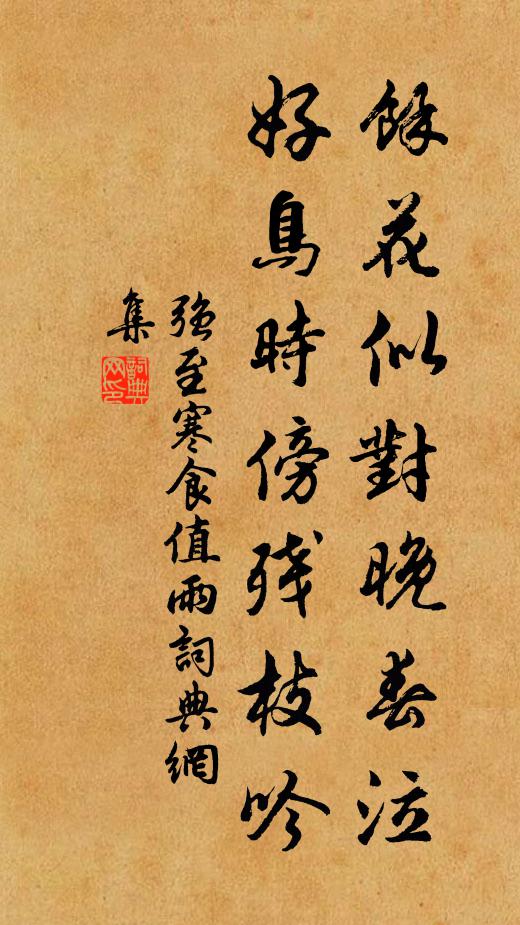 餘花似對晚春泣
好鳥時傍残枝吟
強至寒食值雨詞典網
集
詞典
网印